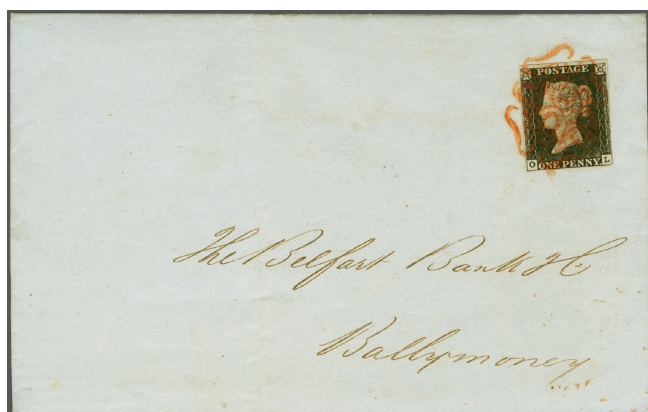 POSTAGE
O ONE PENNY L
The Belfast Bank
Ballymoney